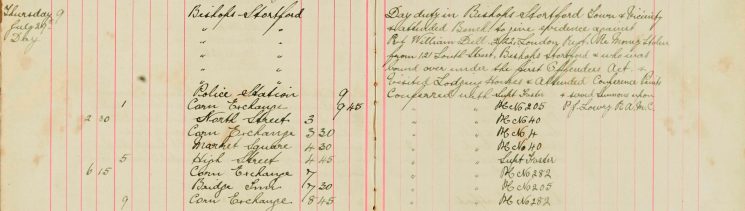 Thursday 9 Bishops Stortford Day duty in Bishops Stortford Town & Vicinity
July 29th " & attended Bench to give evidence against
Day " Rex William Dell
" from 121 South Street, Bishops Stortford & who was
" bound over under the first Offenders Act
" Visited Lodging Houses & Attended Conference Points
Police Station 9 Conferred with Supt Foster & served Summons upon
1 Corn Exchange 9 45 " " PC No 205 P. J. Lowry R.A.M.C.
2 30 North Street 3 " " PC No 40
Corn Exchange 3 30 " " PC No 4
Market Square 4 30 " " PC No 40
5 High Street 4 45 " " Supt Foster
6 15 Corn Exchange 7 " " PC No 282
Bridge Inn 7 30 " " PC No 205
9 Corn Exchange 8 45 " " PC No 282